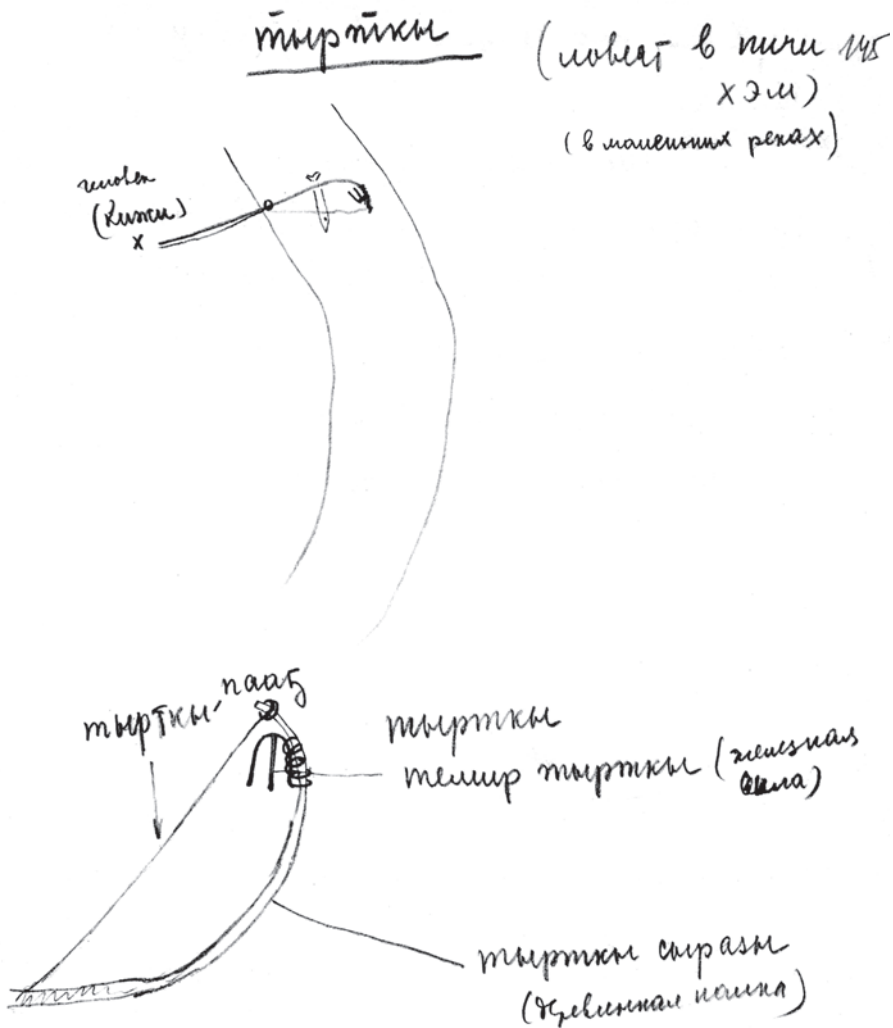 тырткы
(ловят в пичи
хэм)
(в маленьких реках)
человек
(кижи)
х
паағ
тырткы
тырткы
темир тырткы (железная
вила)
тырткы сыразы
(деревянная палка)